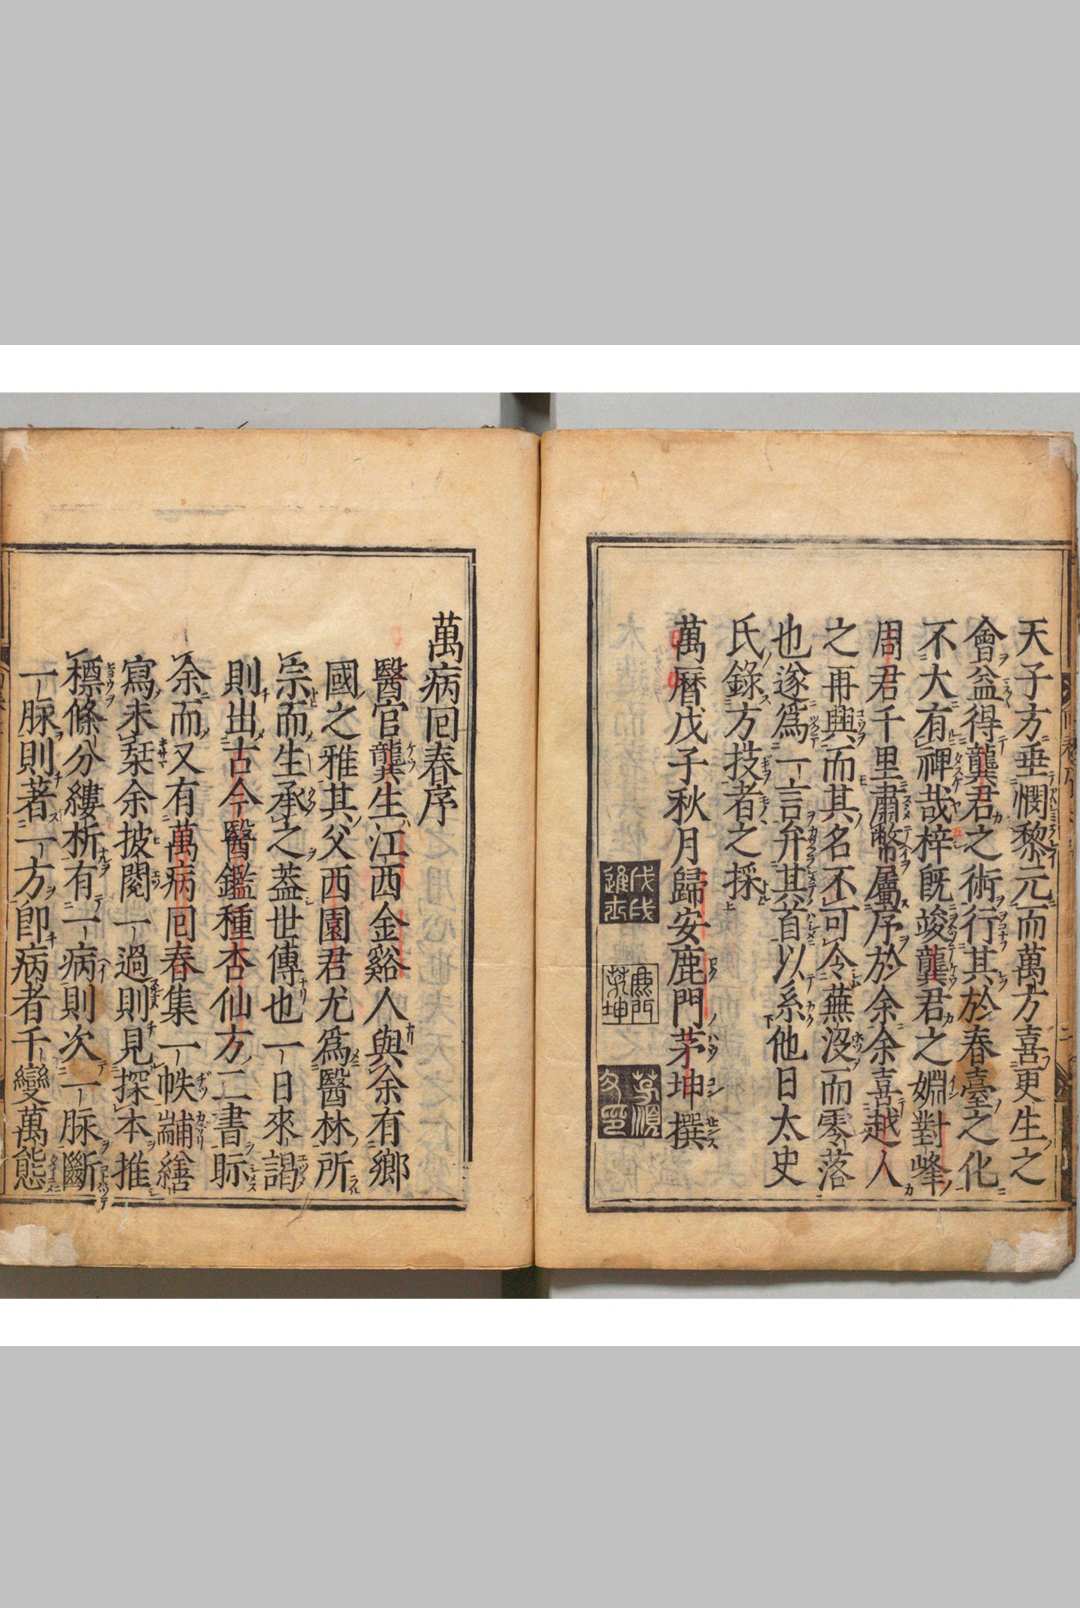 天子方垂憫黎元而萬方喜更生之
會益得龔君之術行其於春臺之化
不大有禆哉梓既竣龔君之婣對峰
周君千里肅幣屬序於余余喜越人
之再興而其名不可令蕪沒而零落
也遂爲一言弁其首以系他日太史
氏錄方技者之採
萬曆戊子秋月歸安鹿門茅坤撰
萬病回春序
醫官龔生江西金谿人與余有鄉
國之雅其父西園君尤爲醫林所
宗而生承之葢世傳也一日來謁
則出古今醫鑑種杏仙方二書眎
余而又有萬病回春集一帙補繕
寫未栞余披閱一過則見探本推
標條分縷析有一病則次一脉斷
一脉則著一方卽病者千變萬態